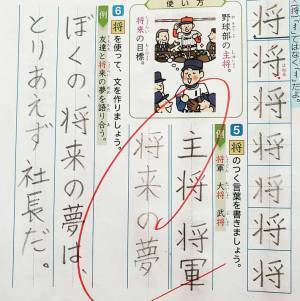 将
将
将
将
将
将
「将」ではなく「」だよ。
はねる
使い方
野球部の主将。
将来の目標。
5 将のつく言葉を書きましょう。
例 将軍 大将 武将
主将 将軍
将来の夢
6 将を使って、文を作りましょう。
例 友達と将来の夢を語り合う。
ぼくの、将来の夢は、
とりあえず社長だ。